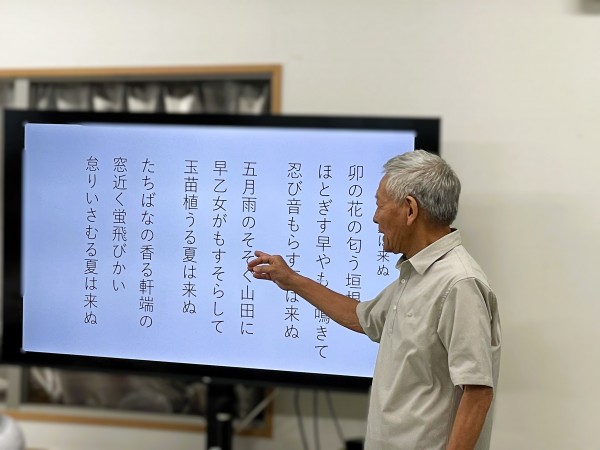 は来ぬ
卯の花の匂う垣
ほとぎす早やも鳴きて
忍び音もらす は来ぬ
五月雨のそそぐ山田に
早乙女がもすそらして
玉苗植うる夏は来ぬ
たちばなの香る軒端の
窓近く蛍飛びかい
怠りいさむる夏は来ぬ